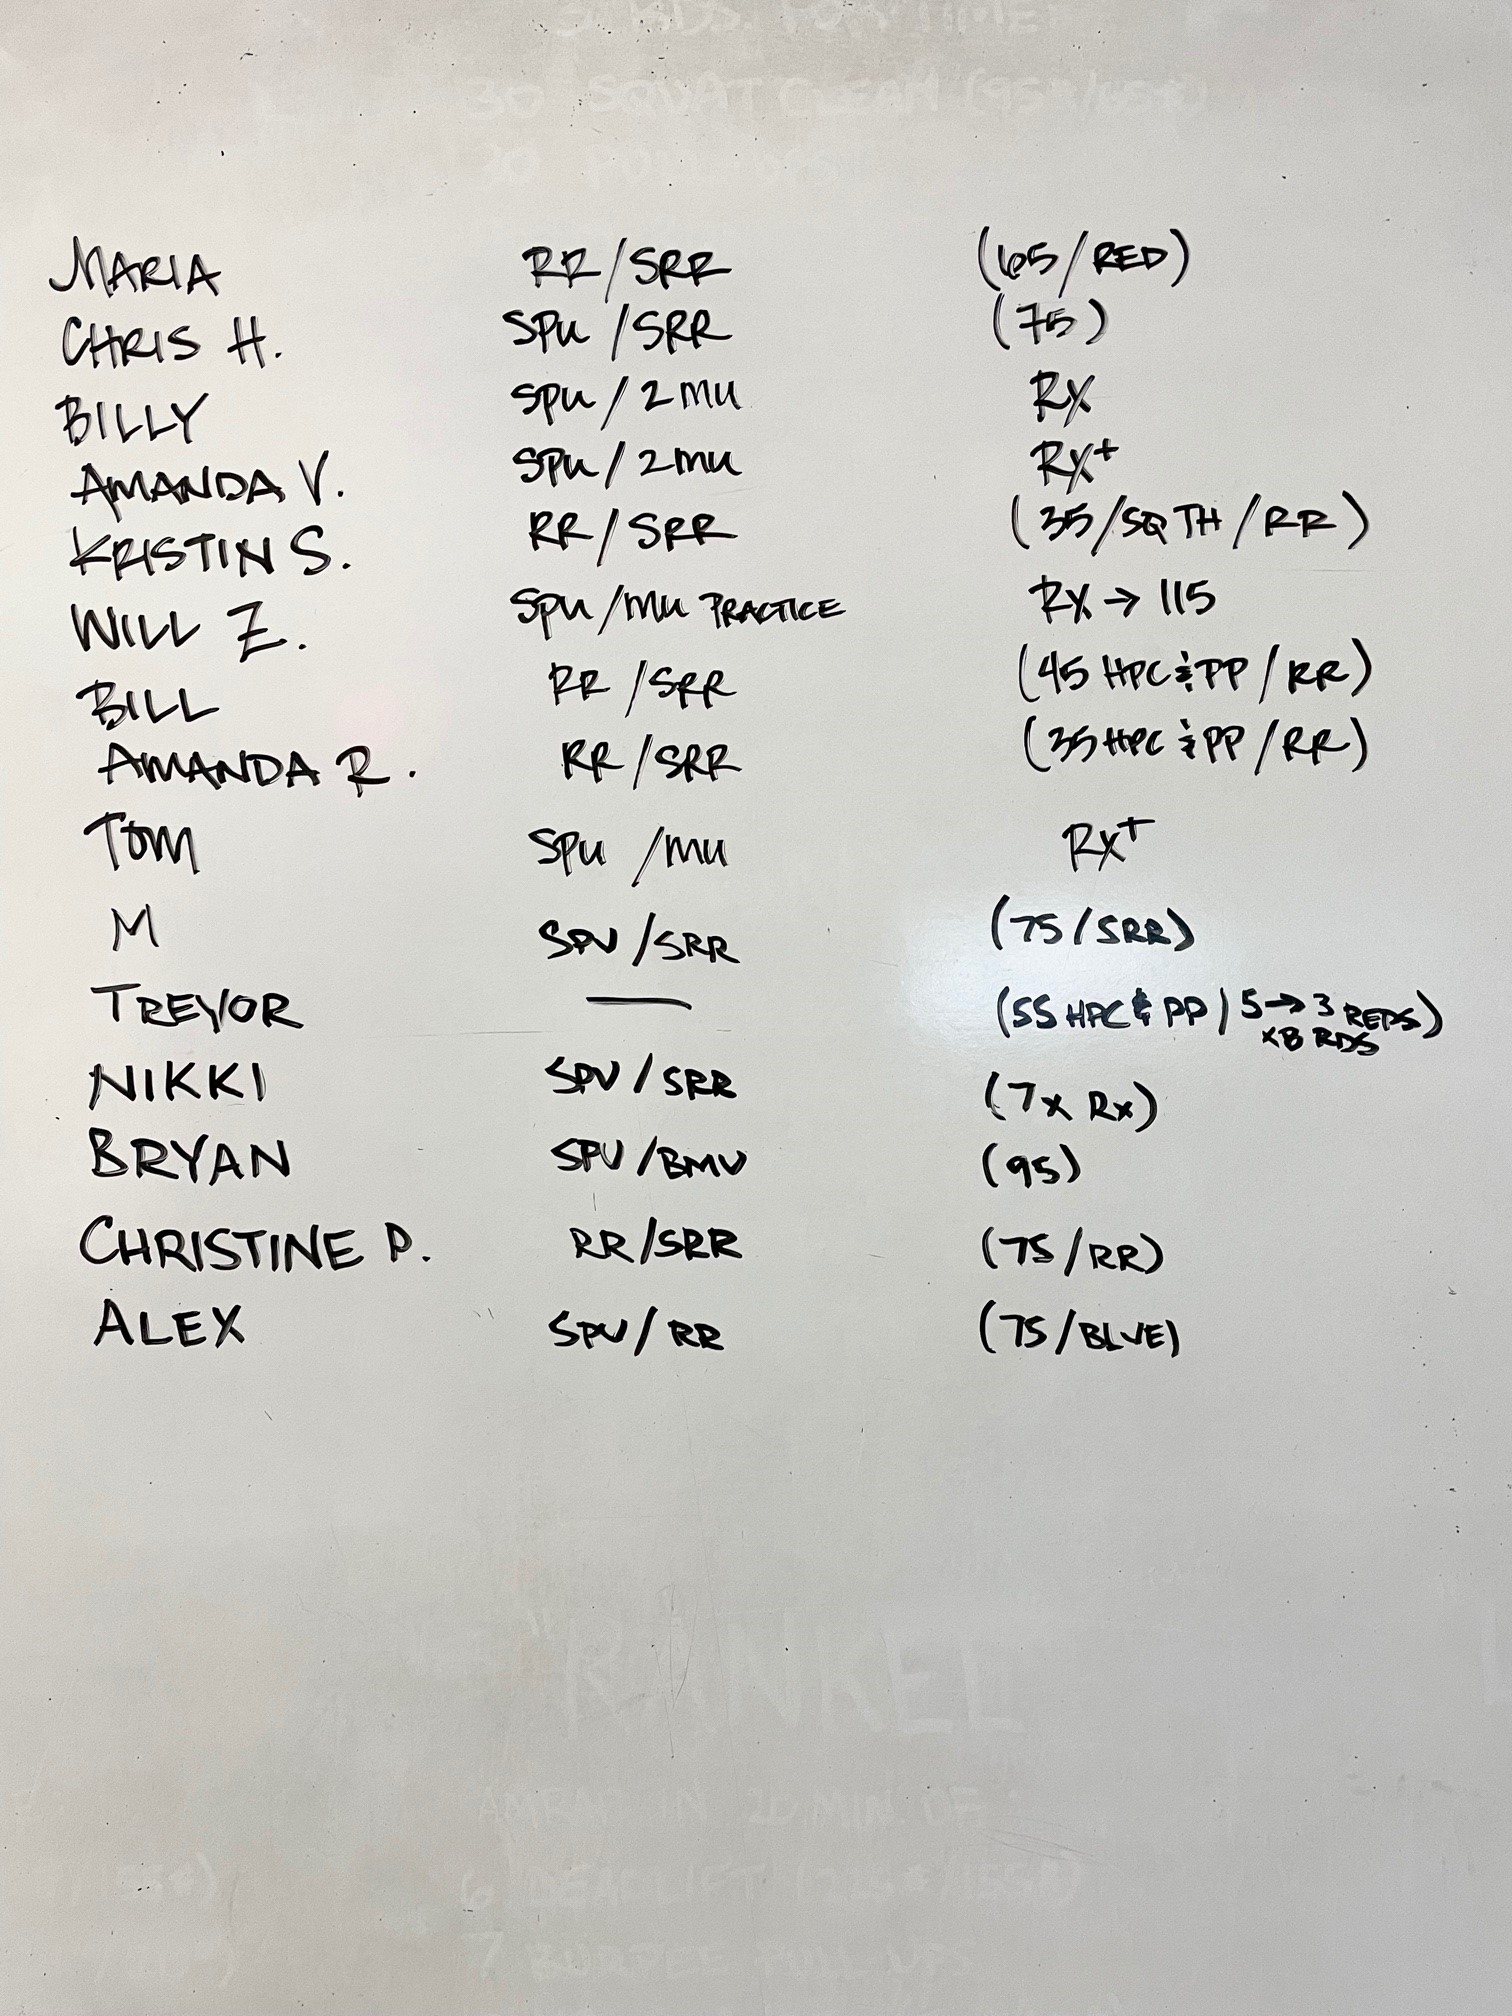 30 SQUAT CLEAN
MARIA RR/SRR (65/RED)
CHRIS H. SPU/SRR (75)
BILLY SPU/2MU RX
AMANDA V. SPU/2MU RX+
KRISTIN S. RR/SRR (35/SQ TH/RR)
WILL Z. SPU/MU PRACTICE RX → 115
BILL RR/SRR (45 HPC & PP/RR)
AMANDA R. RR/SRR (35 HPC & PP/RR)
TOM SPU/MU RX+
M SPU/SRR (75/SRR)
TREVOR — (55 HPC & PP/5→3 REPS
x8 RDS)
NIKKI SPU/SRR (7x Rx)
BRYAN SPU/BMU (95)
CHRISTINE P. RR/SRR (75/RR)
ALEX SPU/RR (75/BLUE)
AMRAP IN 20 MIN OF:
6 DEADLIFT
7 BURPEE PULL UPS